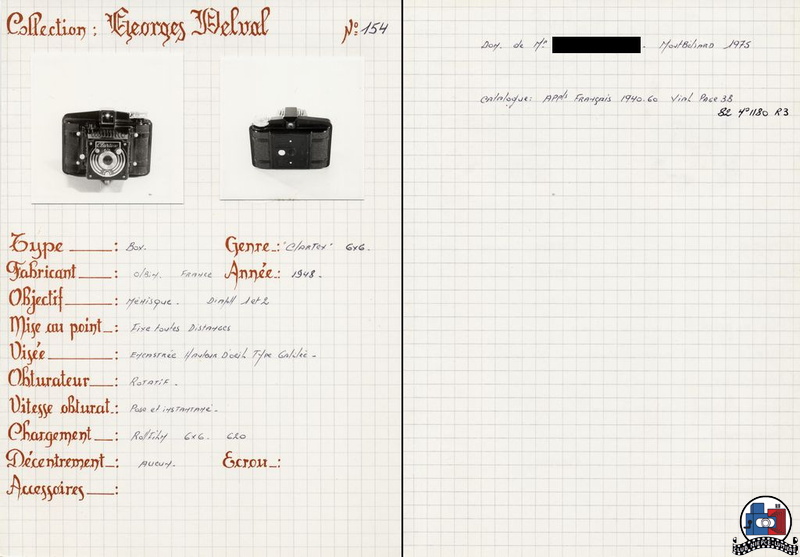 Collection : Georges Delval N°: 154
Type : Box. Genre : "Clartex" 6x6.
Fabricant : France Année : 1948.
Objectif : Ménisque. 1 et 2
Mise au point : Fixe toutes Distances
Visée : Encastrée Hauteur D'oeil Type Galilée.
Obturateur : Rotatif.
Vitesse obturat. : Pose et instantané.
Chargement : Rollfilm 6x6. 620
Décentrement : Aucun. Ecrou :
Accessoires :
Don. de Mr . Montbéliard 1975
Catalogue: Français 1940.60 Vial Page 38
82 N°1180 R3